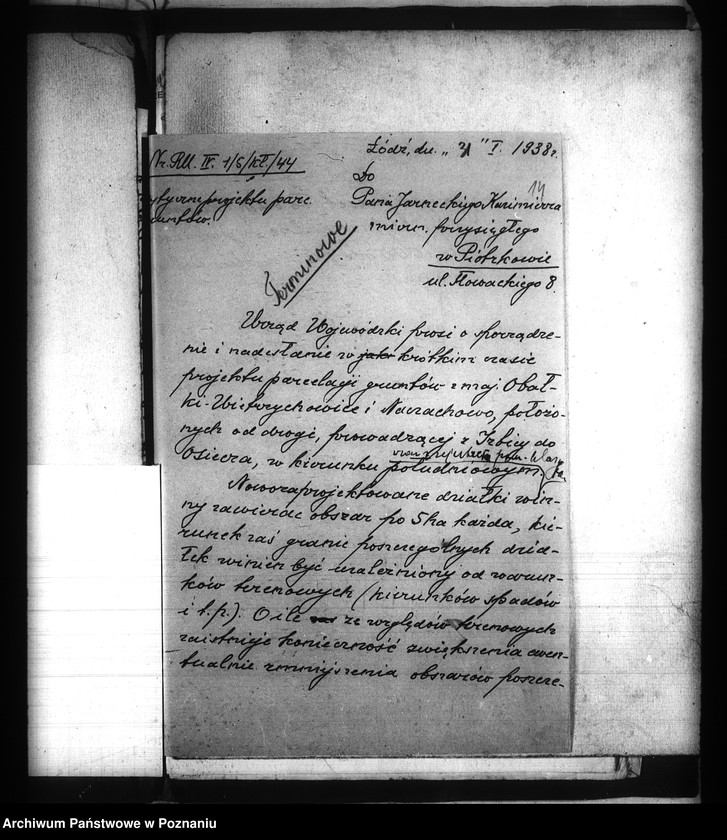 Łódź, dn. „31" I. 1938 r.
Nr. RU. IV. 1/5/Kł./44
Do
14
Pana Jarneckiego Kazimierza
projektu parc.
gruntów.
miern. przysięgłego
w Piotrkowie
Terminowe
ul. Słowackiego 8.
Urząd Wojewódzki prosi o sporządze-
nie i nadesłanie w krótkim czasie
projektu parcelacji gruntów z maj. Obał-
ki-Wietrzychowice i Naczachowo, położo-
nych od drogi, prowadzącej z Izbicy do
Osiecza, w kierunku południowym.
Nowozaprojektowane działki win-
ny zawierać obszar po 5 ha każda, kie-
runek zaś granic poszczególnych dział-
łek winien być uzależniony od warun-
ków terenowych (kierunków spadów
i t.p.). O ile ze względów terenowych
zaistnieje konieczność zwiększenia ewen-
tualnie zmniejszenia obszarów poszcze-
Archiwum Państwowe w Poznaniu